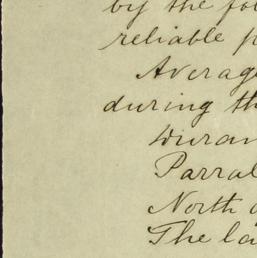 by the fol
reliable p
Average
during th
Duran
Parral
North
The la